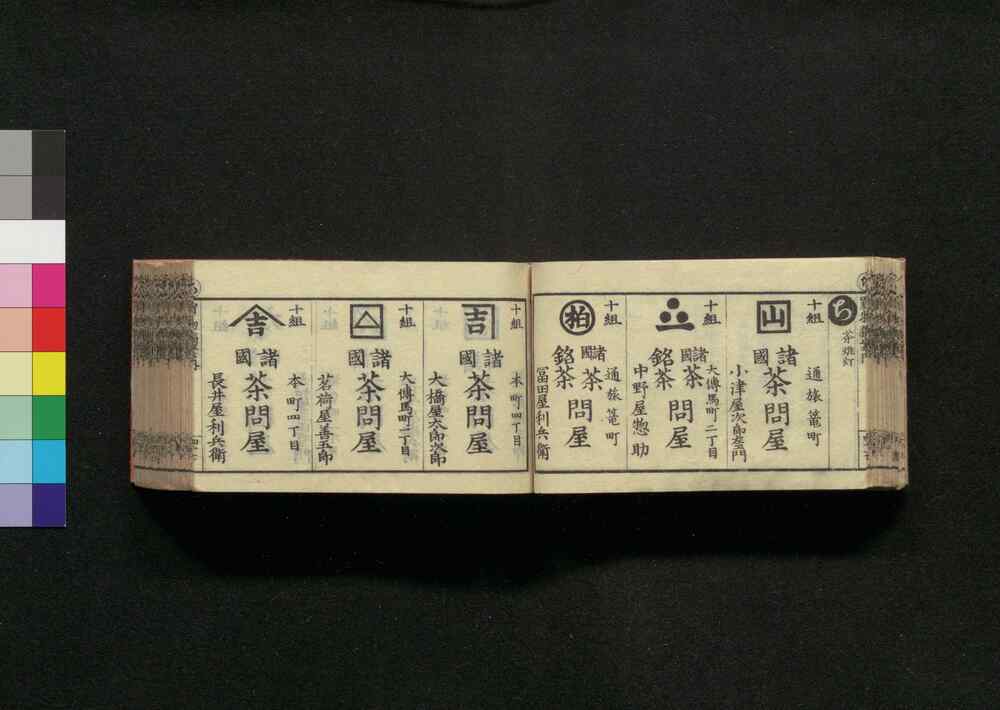 ち
十組
山
通旅篭町
諸國
茶問屋
小津屋次郎左衛門
十組
大傳馬町二丁目
諸國
銘茶
茶問屋
中野屋惣助
十組
柏
通旅篭町
諸國
銘茶
茶問屋
冨田屋利兵衛
十組
吉
本町四丁目
諸國
茶問屋
大橋屋太郎次郎
十組
大傳馬町二丁目
諸國
茶問屋
茗荷屋善五郎
十組
吉
本町四丁目
諸國
茶問屋
長井屋利兵衛